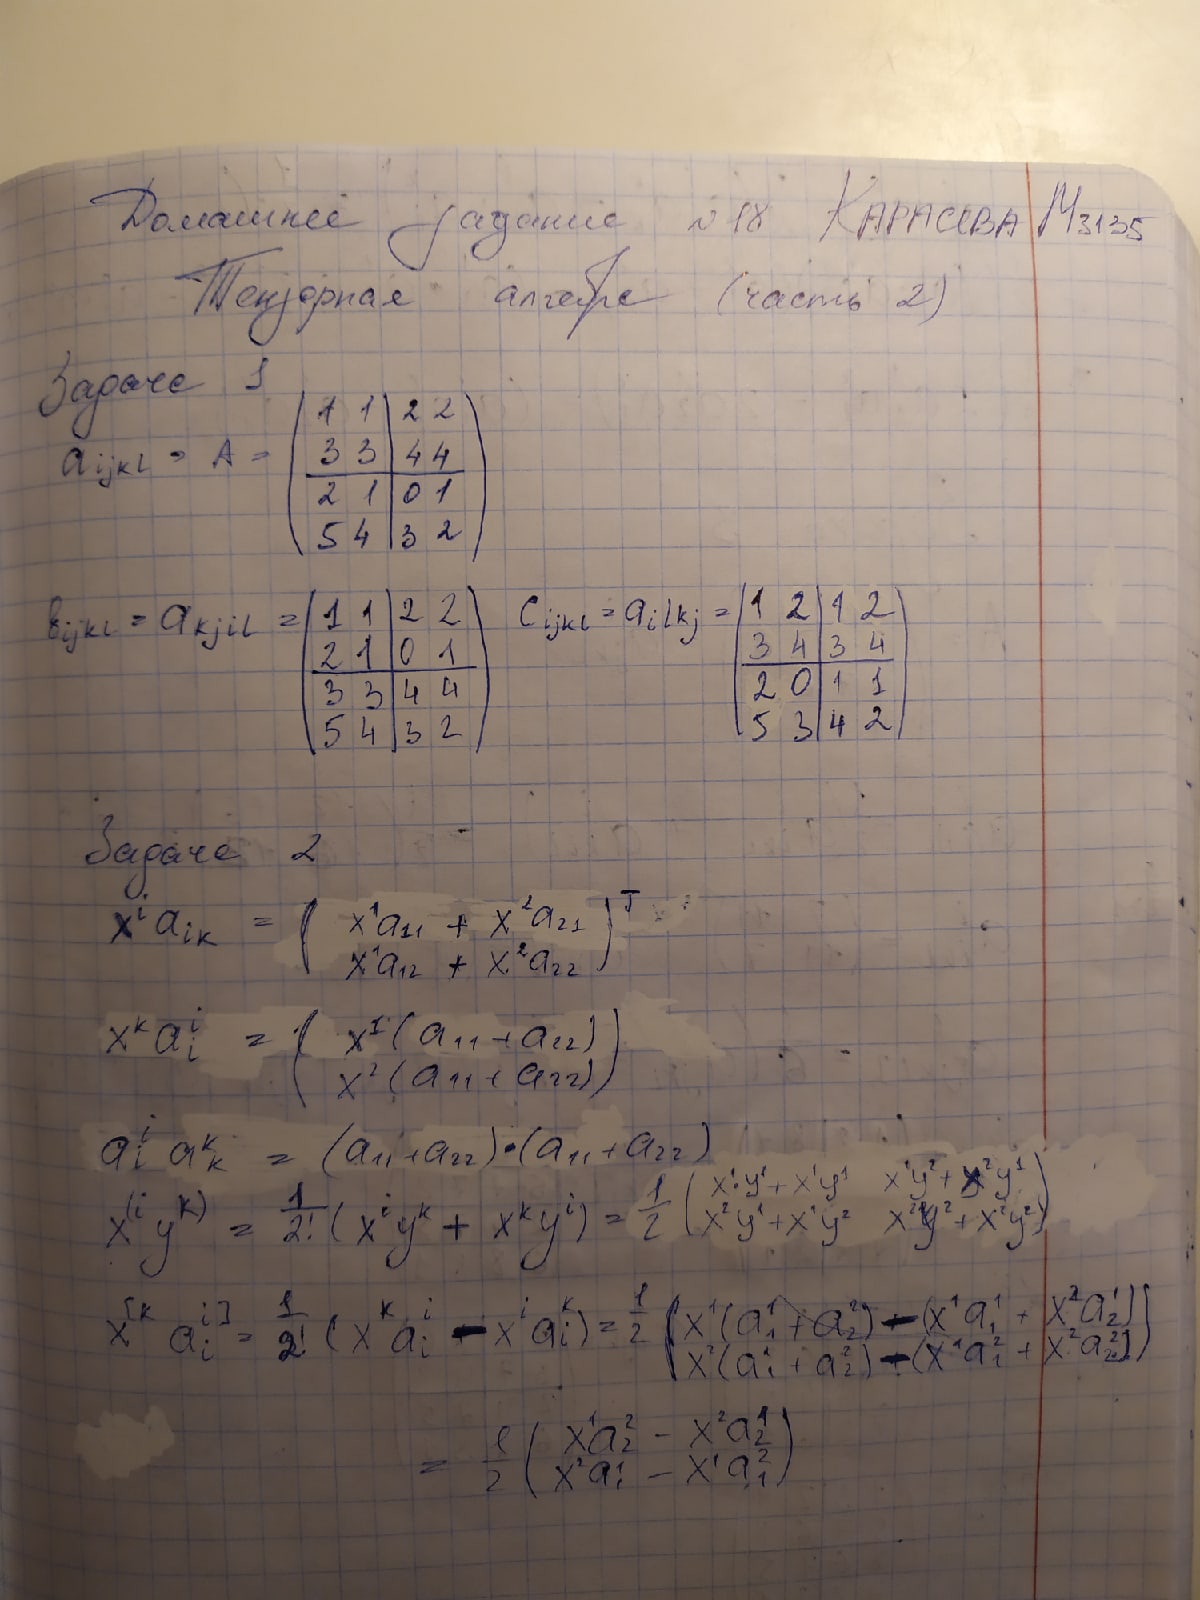 Домашнее задание №18 КАРАСЕВА М3135
Тензорная алгебра (часть 2)
Задача 1
a_{ijkl} = A = ( 1 1 | 2 2
3 3 | 4 4
2 1 | 0 1
5 4 | 3 2 )
b_{ijkl} = a_{kjil} = ( 1 1 | 2 2
2 1 | 0 1
3 3 | 4 4
5 4 | 3 2 )
c_{ijkl} = a_{ilkj} = ( 1 2 | 1 2
3 4 | 3 4
2 0 | 1 1
5 3 | 4 2 )
Задача 2
x^i a_{ik} = ( x^1 a_{11} + x^2 a_{21}
x^1 a_{12} + x^2 a_{22} )^T
x^k a^i_i = ( x^1 (a_{11} + a_{22})
x^2 (a_{11} + a_{22}) )
a^i_i a^k_k = (a_{11} + a_{22}) · (a_{11} + a_{22})
x^{(i} y^{k)} = 1/2! (x^i y^k + x^k y^i) = 1/2 ( x^1 y^1 + x^1 y^1 x^1 y^2 + x^2 y^1
x^2 y^1 + x^1 y^2 x^2 y^2 + x^2 y^2 )
x^{[k} a^{i]}_i = 1/2! (x^k a^i_i - x^i a^k_i) = 1/2 ( x^1 (a^1_1 + a^2_2) - (x^1 a^1_1 + x^2 a^1_2)
x^2 (a^1_1 + a^2_2) - (x^1 a^2_1 + x^2 a^2_2) )
= 1/2 ( x^1 a^2_2 - x^2 a^1_2
x^2 a^1_1 - x^1 a^2_1 )